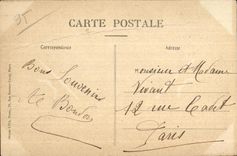 CARTE POSTALE
Correspondance
Adresse
Bons Souvenirs
Monsieur et Madame
Vivant
12 rue Cadet
Paris